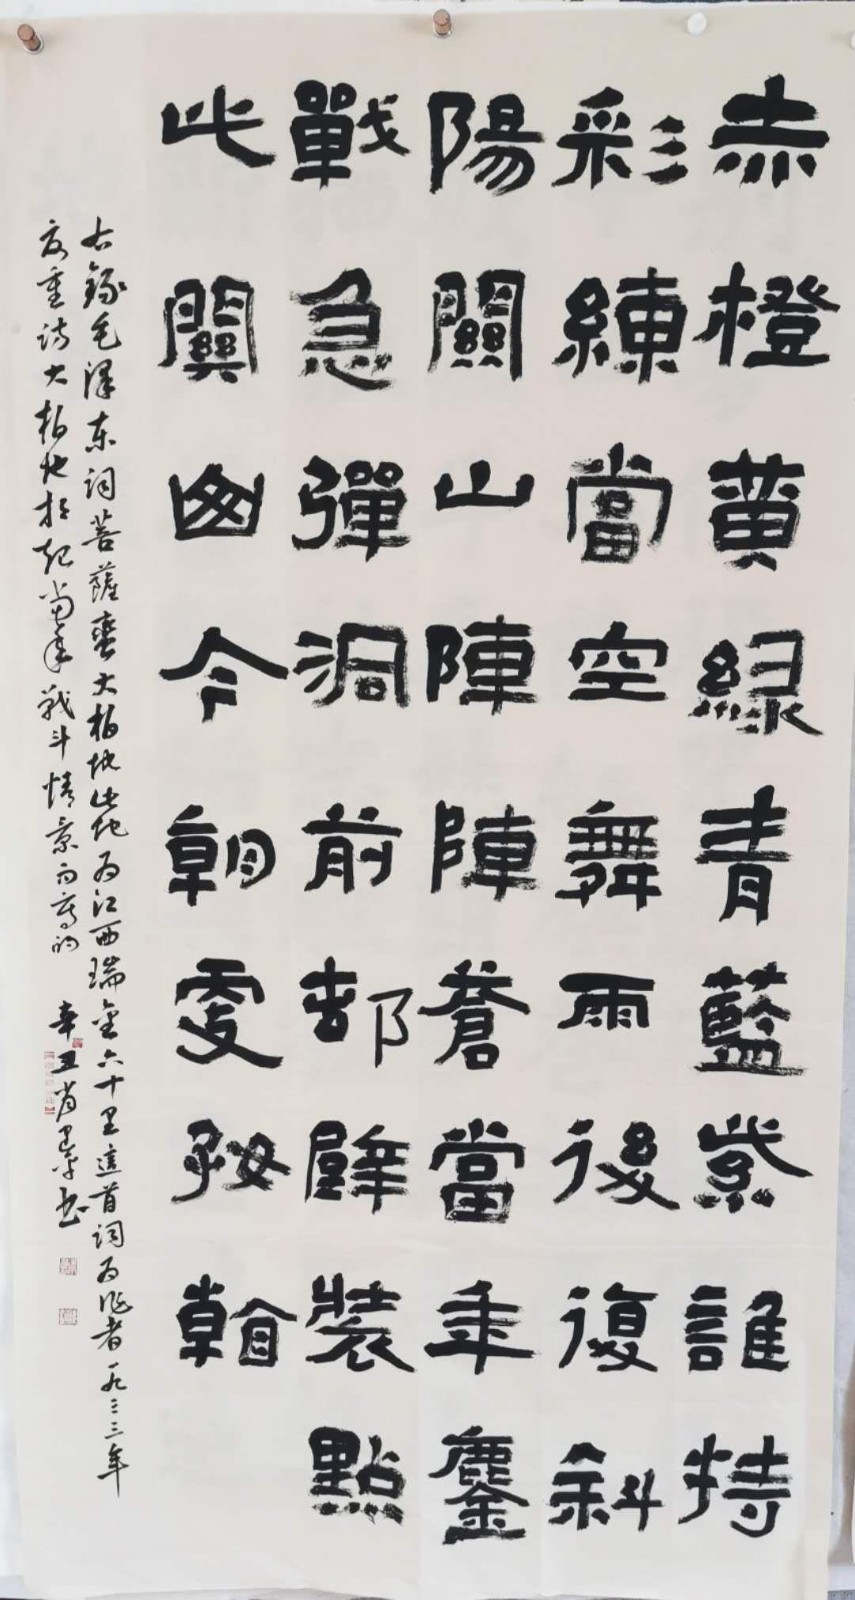 赤橙黄綠青藍紫誰持
彩練當空舞雨後復斜
陽關山陣陣蒼當年鏖
戰急彈洞前邨壁裝點
此關山今朝更好看
右錄毛澤東詞菩薩蠻大柏地此地为江西瑞金六十里這首詞为作者一九三三年
夏重访大柏地想起当年战斗情景而寫的 辛丑肖书